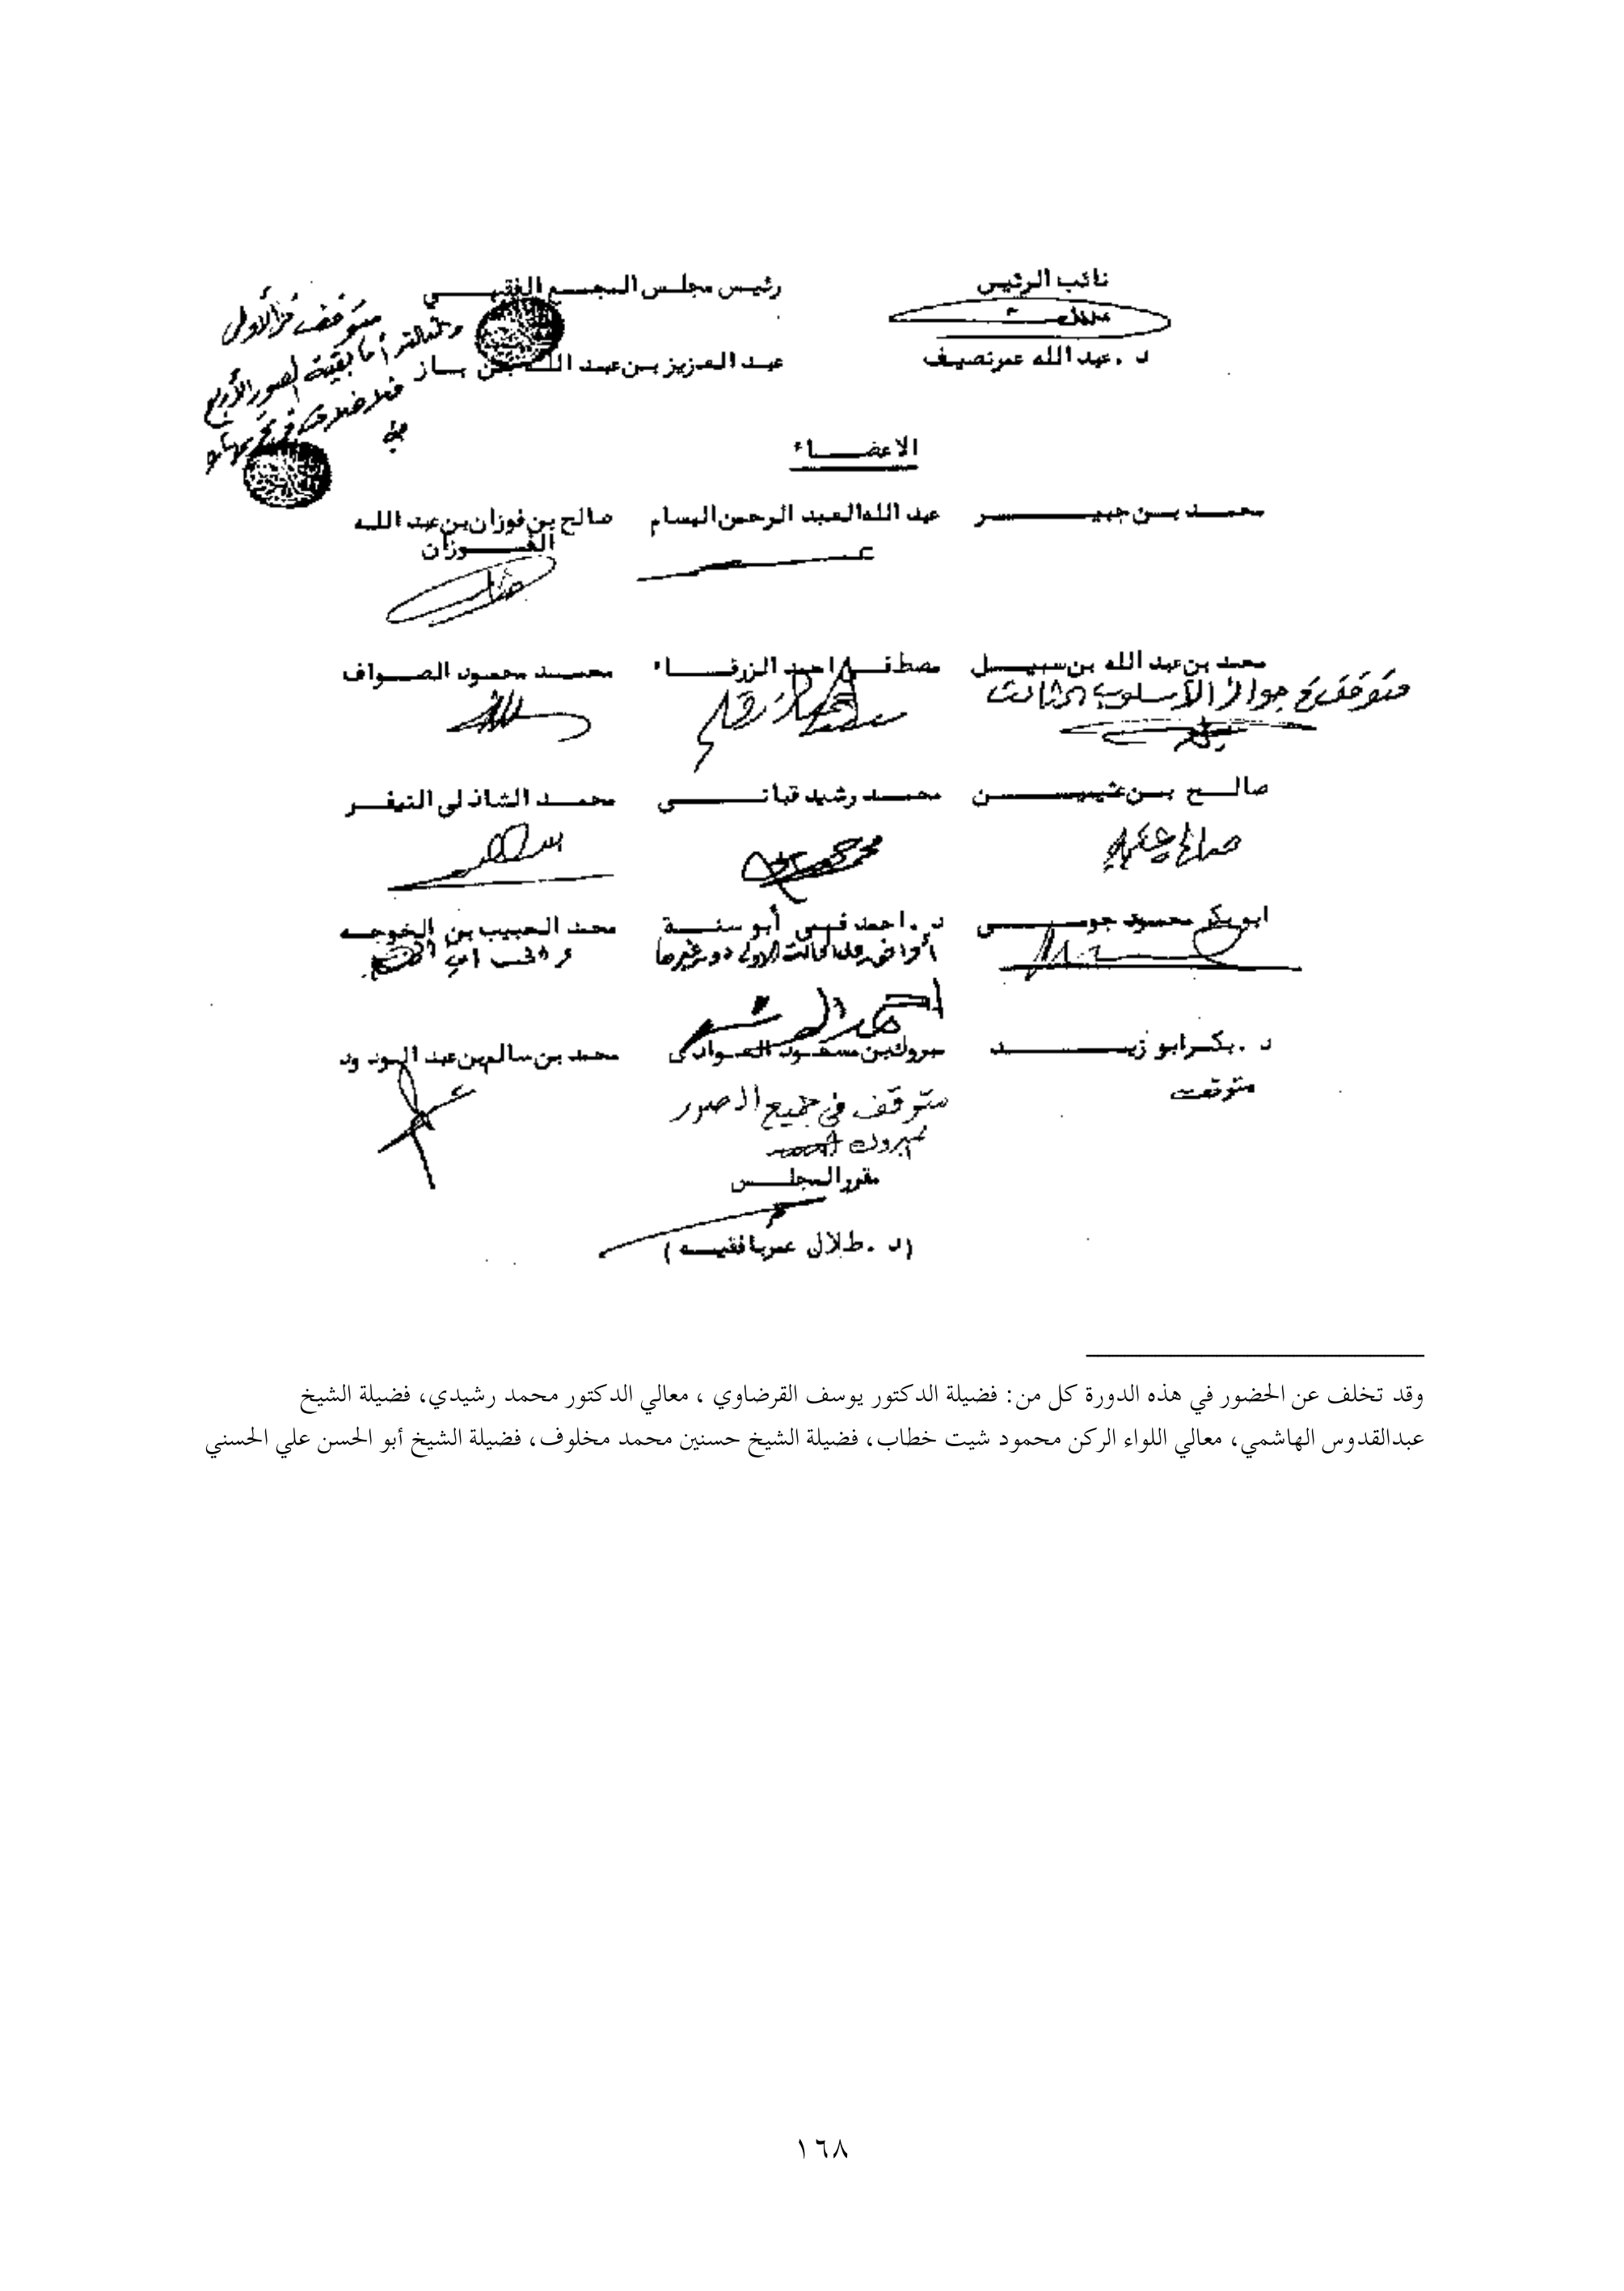 نائب الرئيس
د. عبد الله عمر نصيف
رئيس مجلس المجمع الفقهي
عبد العزيز بن عبد الله بن باز
متوقف في الأولى
والثالثة أما بقية الصور الأربع
فلا
الاعضاء
محمد بن جبير
عبد الله العبد الرحمن البسام
صالح بن فوزان بن عبد الله
الفوزان
محمد بن عبد الله بن سبيل
متوقف في جواز الأسلوب الثالث
مصطفى احمد الزرقاء
محمد محمود الصواف
صالح بن عثيمين
صالح عثيمين
محمد رشيد قباني
محمد الشاذلى النيفر
ابو بكر محمود جومي
د. احمد فهمى أبو سنة
أوافق على الحالة الأولى دون غيرها
محمد الحبيب بن الخوجه
د. بكر ابو زيد
متوقف
مبروك بن مسعود العوادى
متوقف في جميع الصور
مبروك
محمد بن سالم بن عبد الودود
مقرر المجلس
(د. طلال عمر بافقيه)
وقد تخلف عن الحضور في هذه الدورة كل من: فضيلة الدكتور يوسف القرضاوي ، معالي الدكتور محمد رشيدي، فضيلة الشيخ
عبدالقدوس الهاشمي، معالي اللواء الركن محمود شيت خطاب، فضيلة الشيخ حسنين محمد مخلوف، فضيلة الشيخ أبو الحسن علي الحسني
١٦٨